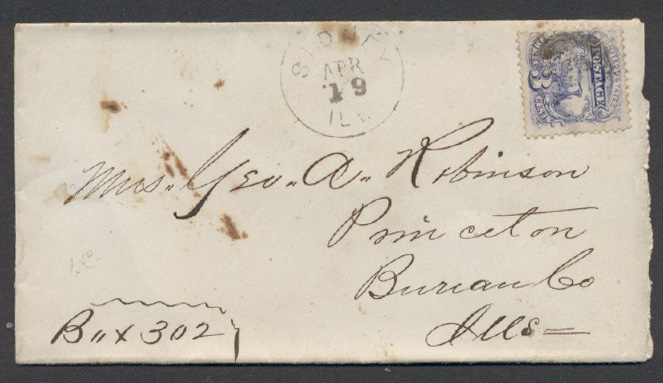 SIDNEY
APR
19
ILL
POSTAGE
Mrs. Geo. A. Robinson
Princeton
Bureau Co
Ills
Box 302